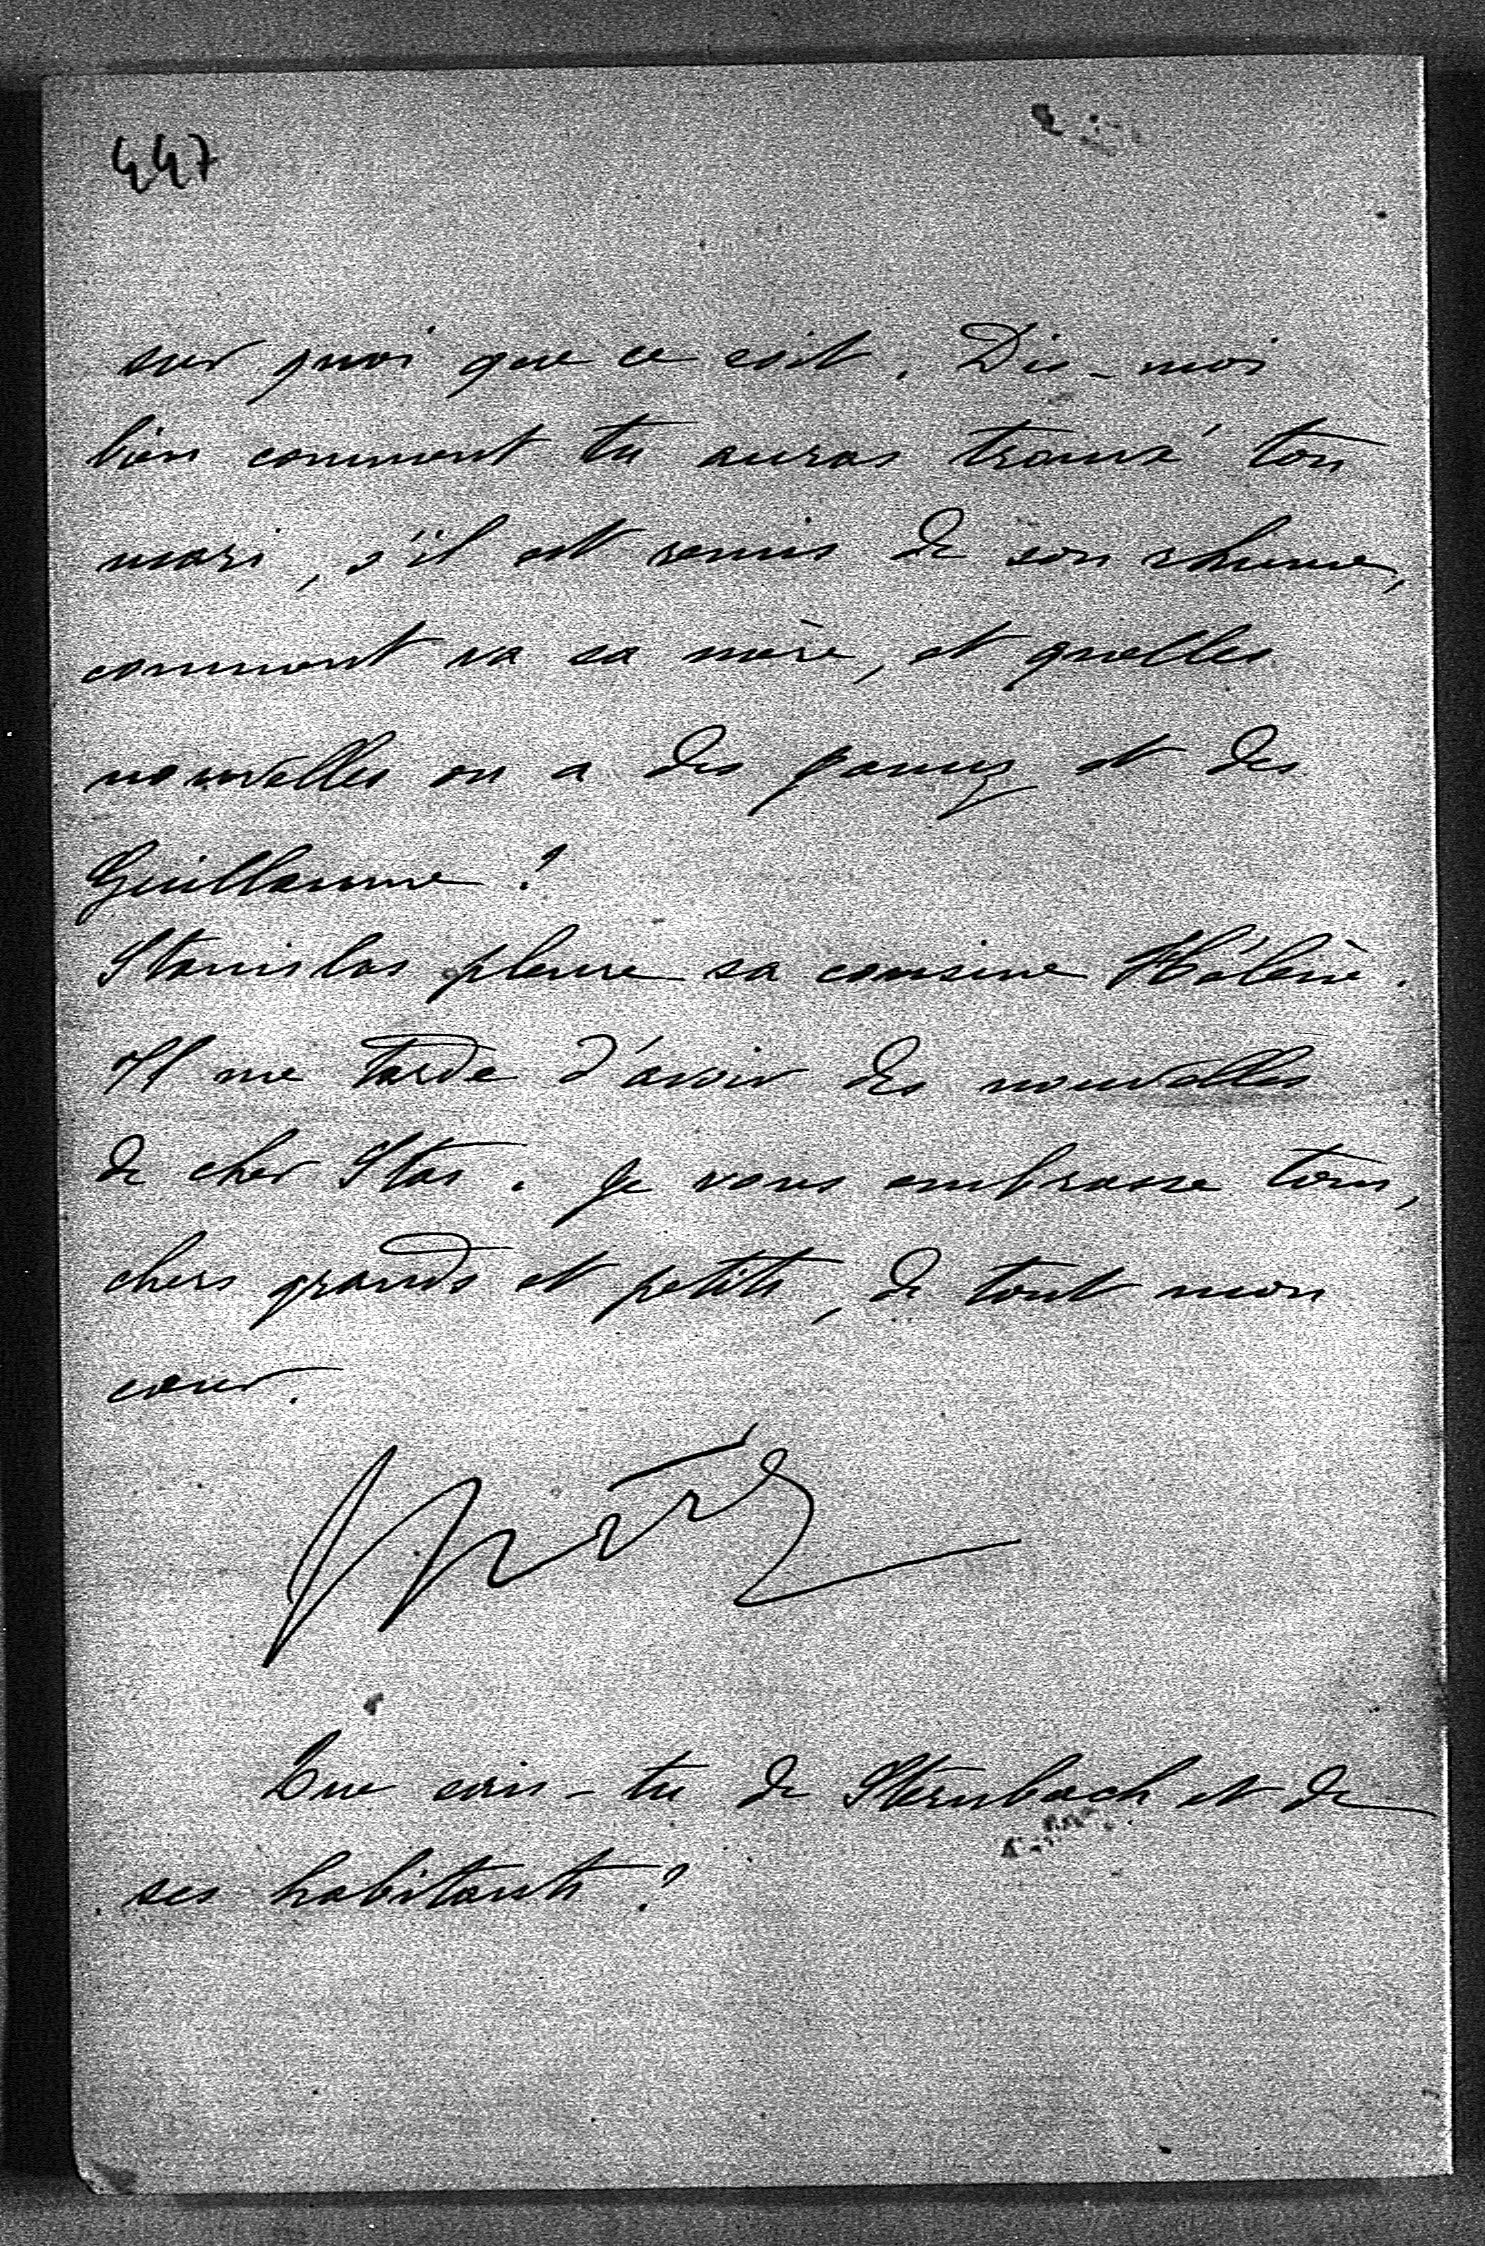 447
sur quoi que ce soit. Dis-moi
bien comment tu auras trouvé ton
mari, s'il est remis de son rhume,
comment va sa mère, et quelles
nouvelles on a des et des
Guillaume!
Stanislas pleure sa cousine Hélène.
Il me tarde d'avoir des nouvelles
de cher Stas. Je vous embrasse tous,
chers grands et petits, de tout mon
cœur.
Que sais-tu de Sternbach et de
ses habitants?